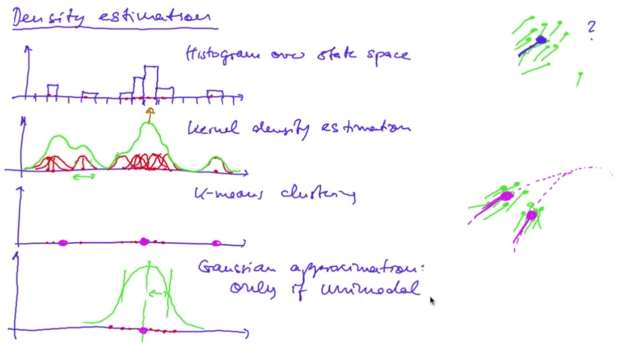 Density estimation
Histogram over state space
?
Kernel density estimation
K-means clustering
Gaussian approximation:
only if unimodal